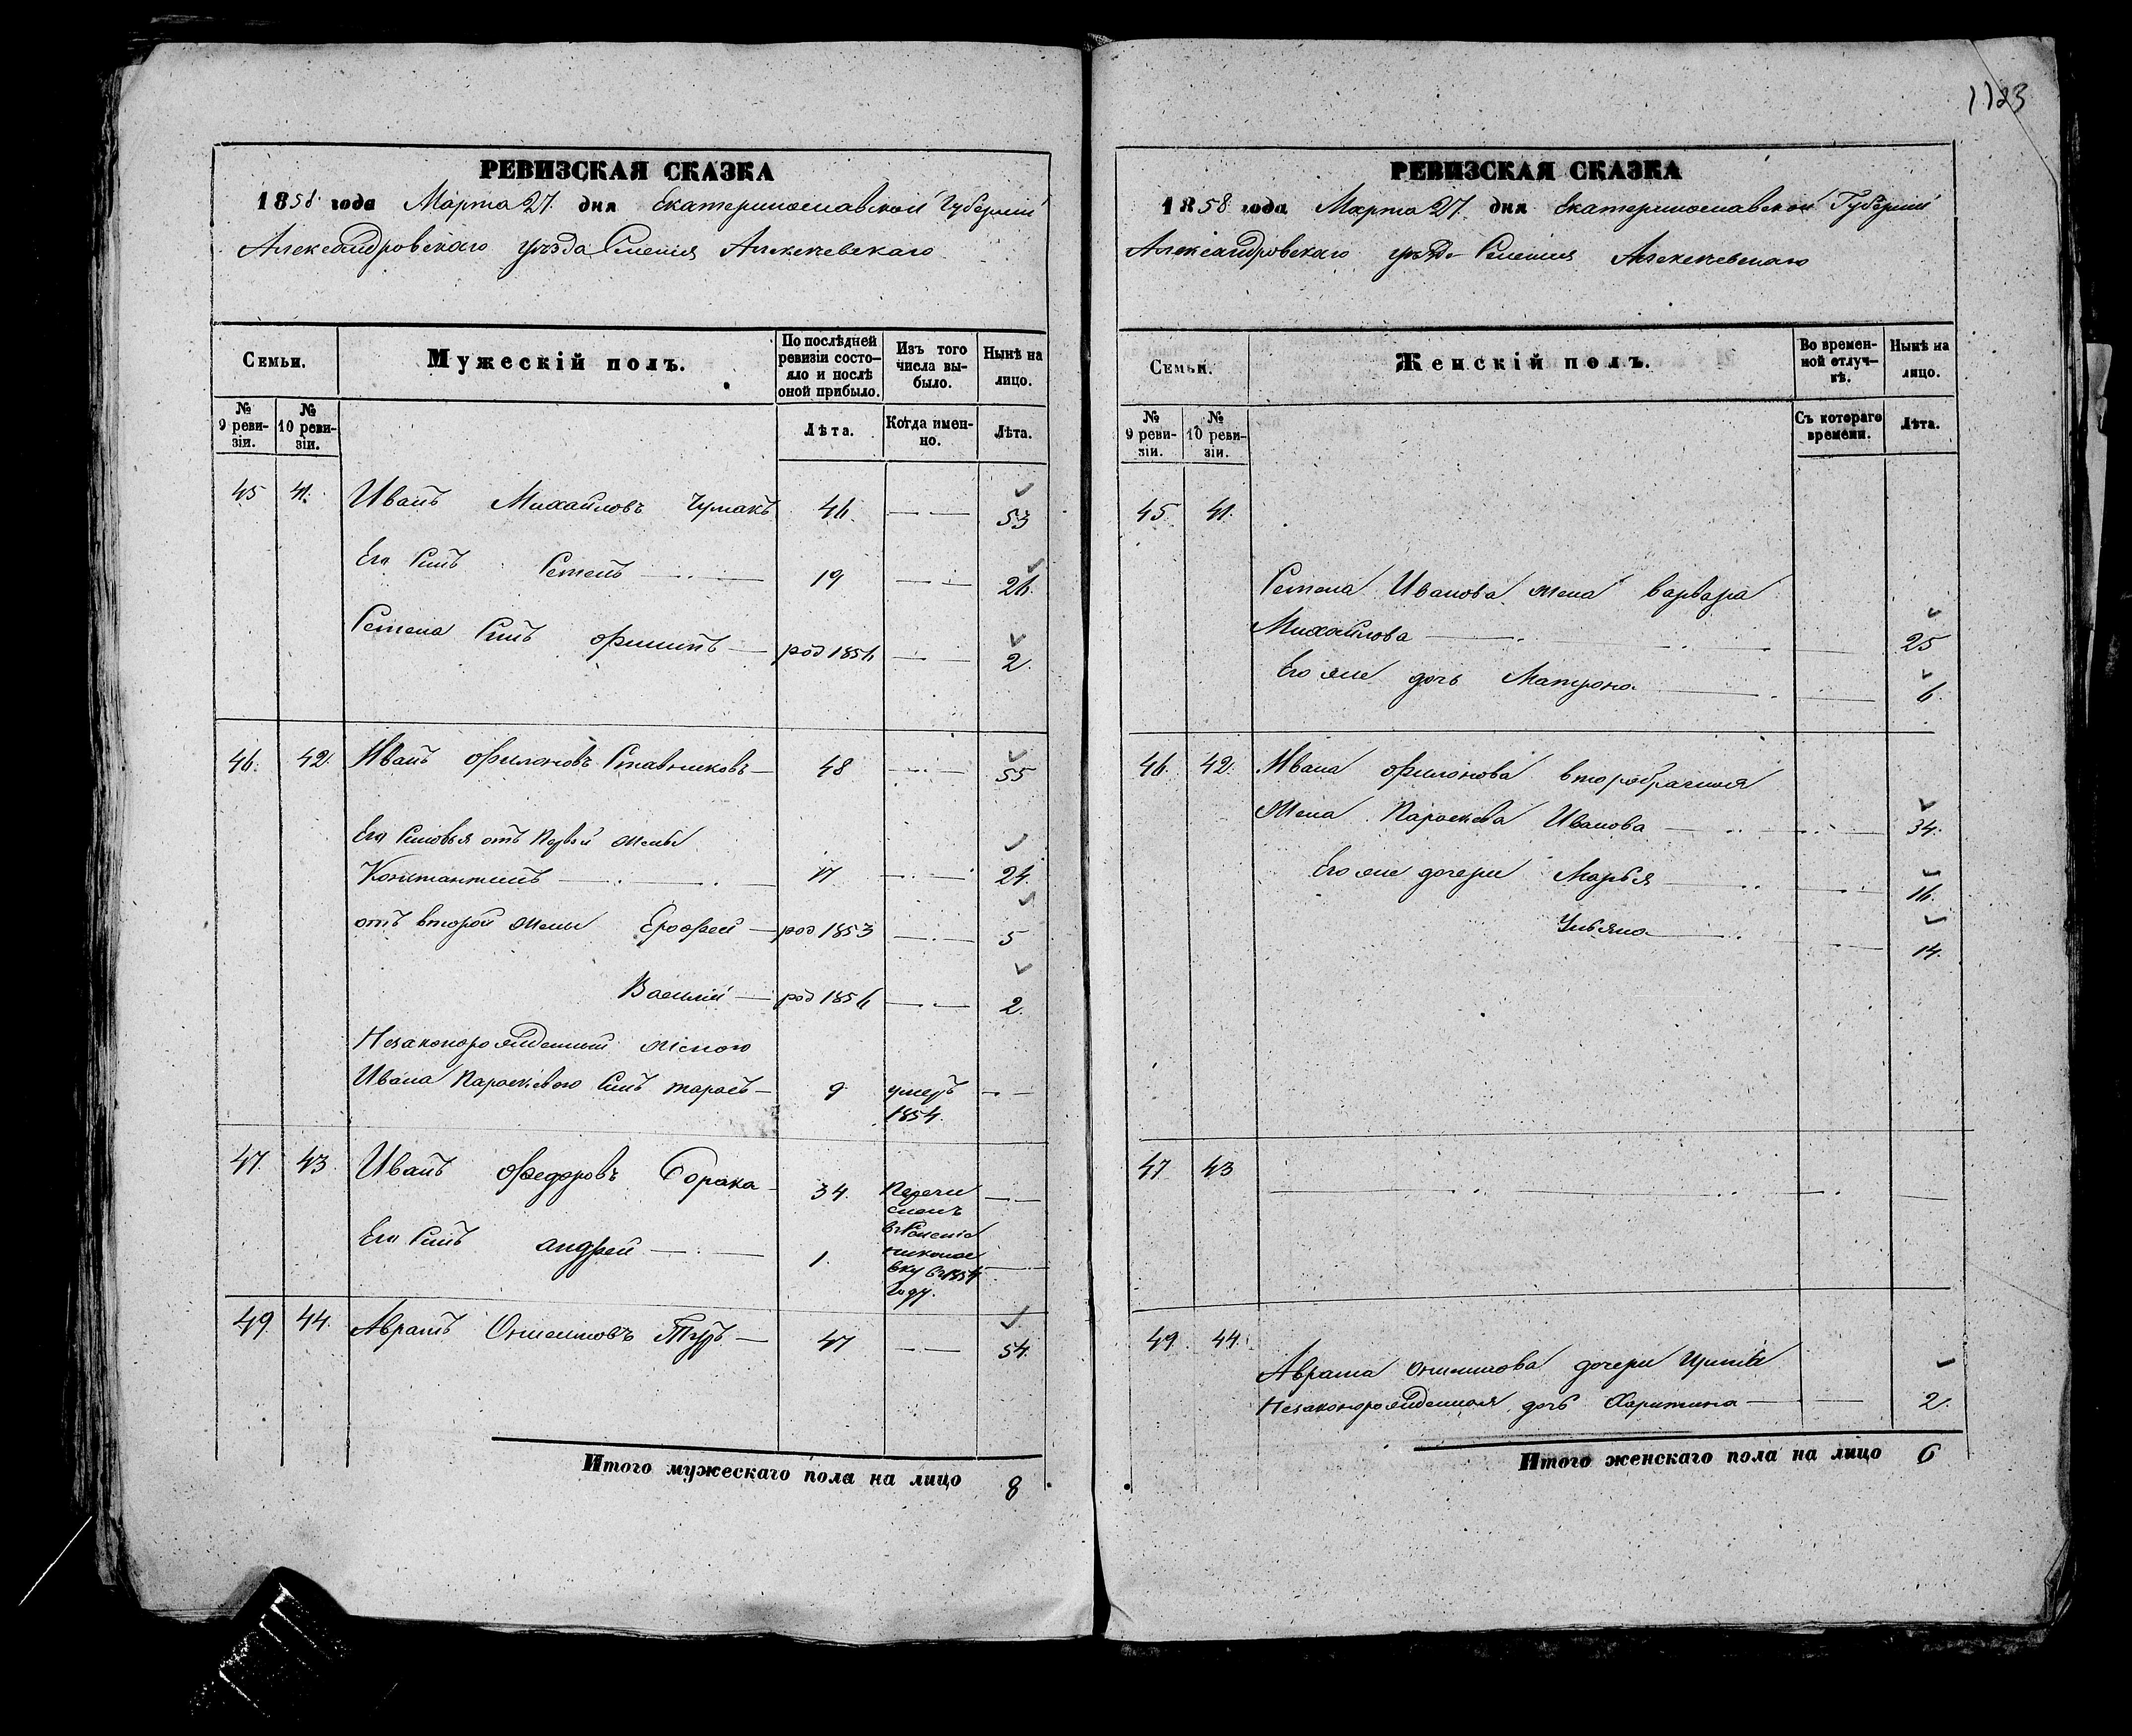 1123
РЕВИЗСКАЯ СКАЗКА
1858 года Марта 27 дня Екатеринославской Губернии
Александровскаго уѣзда Селенія Алексѣевскаго
Семьи.
Мужескій полъ.
По послѣдней ревизіи состо-
яло и послѣ оной прибыло.
Изъ того числа вы-
было.
Нынѣ на лицо.
№ 9 реви-
зіи.
№ 10 реви-
зіи.
Лѣта.
Когда имен-
но.
Лѣта.
45 41. Иванъ Михайловъ Чумакъ 46. 53
Его Сынъ Семенъ 19 26.
Семена Сынъ Филипъ род 1856 2.
46. 42. Иванъ Филоновъ Ставниковъ 48 55
Его Сыновья отъ Первой жены
Константинъ 17 24.
отъ второй жены Ерофей род 1853 5
Василий род 1856 2.
Незаконорожденный женою
Ивана Параскевою Сынъ Тарасъ 9 умеръ
1854.
47. 43. Иванъ Федоровъ Сорока 34. Перечи
сленъ
Его Сынъ андрей 1.
году.
49. 44. Аврамъ Туръ 47 54.
Итого мужескаго пола на лицо 8
РЕВИЗСКАЯ СКАЗКА
1858 года Марта 27 дня Екатеринославской Губерніи
Александровскаго уѣзда Селенія Алексѣевскаго
Семьи.
Женскій полъ.
Во времен-
ной отлуч-
кѣ.
Нынѣ на лицо.
№ 9 реви-
зіи.
№ 10 реви-
зіи.
Съ котораго времени.
Лѣта.
45. 41.
Семена Иванова жена варвара
Михайлова 25
Его же дочь Матрона 6.
46. 42. Ивана Филонова второбрачная
Жена Параскева Иванова 34.
Его же дочери Марья 16.
Ульяна 14.
47 43
49. 44.
Аврама дочери
Незаконорожденная дочь Харитина 2.
Итого женскаго пола на лицо 6